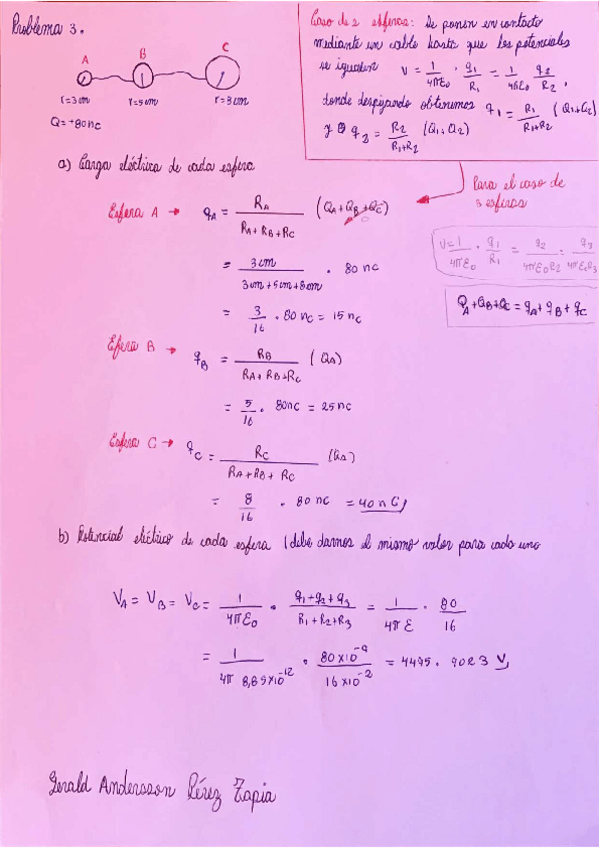 Problema 3.
A B C
r=3cm r=5cm r=8cm
Q=+80nc
Caso de 2 esferas: Se ponen en contacto
mediante un cable hasta que los potenciales
se igualen V = 1/4πε0 · q1/R1 = 1/4πε0 q2/R2,
donde despejando obtenemos q1 = R1/R1+R2 (Q1+Q2)
y q2 = R2/R1+R2 (Q1+Q2)
a) Carga eléctrica de cada esfera
Para el caso de
3 esferas
V=1/4πε0 · q1/R1 = q2/4πε0R2 = q3/4πε0R3
QA+QB+QC = qA+qB+qC
Esfera A → qA = RA/RA+RB+RC (QA+QB+QC)
= 3cm/3cm+5cm+8cm · 80 nc
= 3/16 · 80 nc = 15 nc
Esfera B → qB = RB/RA+RB+RC (QA)
= 5/16 · 80nc = 25 nc
Esfera C → qC = RC/RA+RB+RC (QA)
= 8/16 · 80 nc = 40 nC,
b) Potencial eléctrico de cada esfera (debe darnos el mismo valor para cada uno
VA = VB = VC = 1/4πε0 · q1+q2+q3/R1+R2+R3 = 1/4πε · 80/16
= 1/4π 8,85x10^-12 · 80x10^-9/16x10^-2 = 4495.9023 V,
Gerald Andersson Pérez Tapia